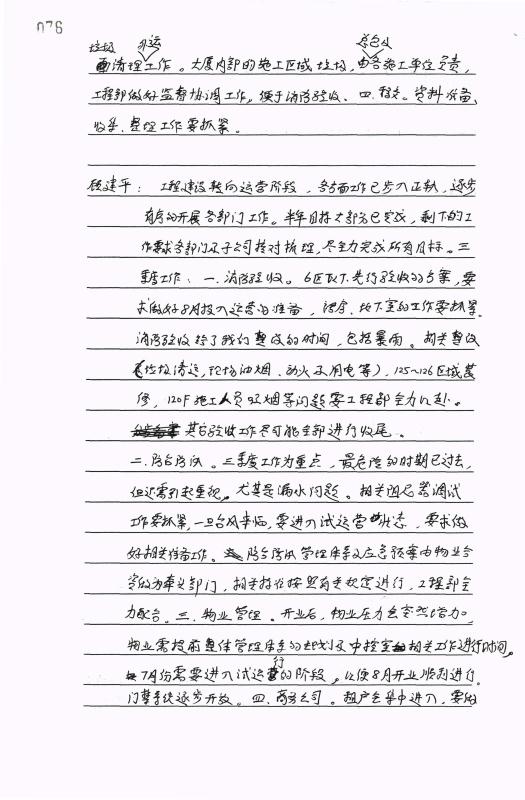 076
垃圾 外运 总包以
面清理工作。大厦内部的施工区域垃圾，由各施工单位负责，
工程部做好监督协调工作。便于消防验收、四、档案。资料准备、
收集、整理工作要抓紧。
顾建平：工程建设转向运营阶段，各方面工作已步入正轨，逐步
有序的开展各部门工作。半年目标大部分已完成，剩下的工
作要求各部门及子公司按对梳理，尽全力完成所有目标。三
季度工作：一、消防验收。6区以下先行验收的方案，要
求做好8月投入运营的准备，裙房、地下室的工作要抓紧。
消防验收给了我们整改的时间，包括暴雨。相关整改
（垃圾清运，现场油烟、动火及用电等），125~126区域装
修，120F施工人员吸烟等问题要工程部全力以赴。
其各验收工作尽可能全部进行收尾。
二、防台防汛。三季度工作为重点，最危险的时期已过去，
但还需引起重视。尤其是漏水问题。相关阻尼器调试
工作要抓紧，一旦台风来临，要进入试运营状态，要求做
好相关准备工作。防台防汛管理体系及应急预案由物业公
司做为牵头部门，相关择在按照有关规定进行，工程部全
力配合。三、物业管理。开业后，物业压力会突然增加。
物业需提前整体管理体系的规划及中控室相关工作进行时间。
7月份需要进入试运行的阶段，以便8月开业顺利进行。
门禁系统逐步开放。四、商务公司。租户会集中进入，要做